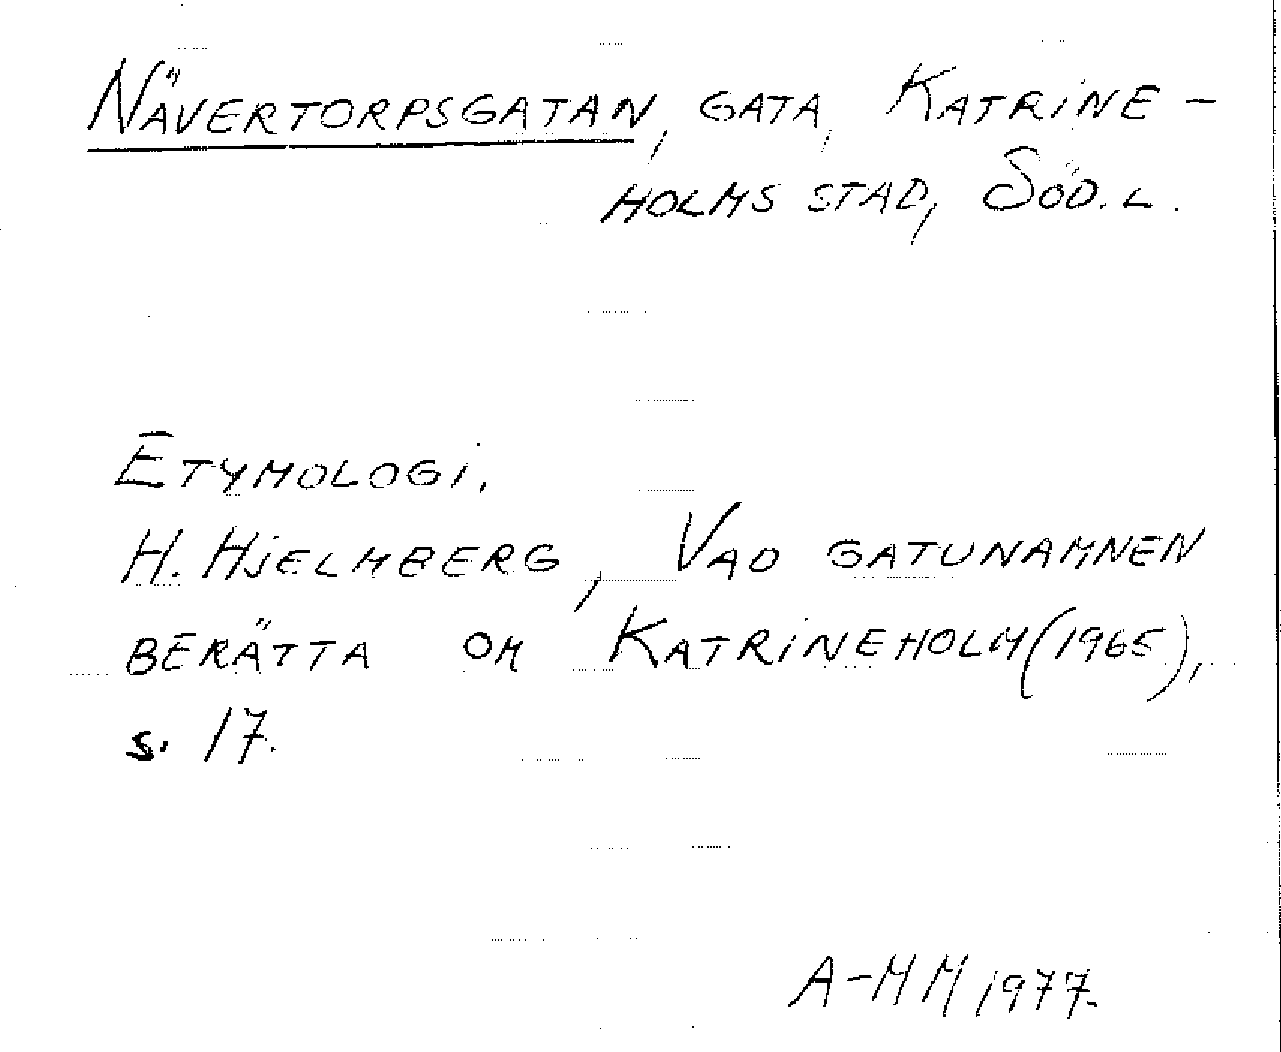 NÄVERTORPSGATAN, GATA, KATRINE-
HOLMS STAD, SÖD. L.
ETYMOLOGI.
H. HJELMBERG, VAD GATUNAMNEN
BERÄTTA OM KATRINEHOLM (1965),
s. 17.
A-MM 1977.